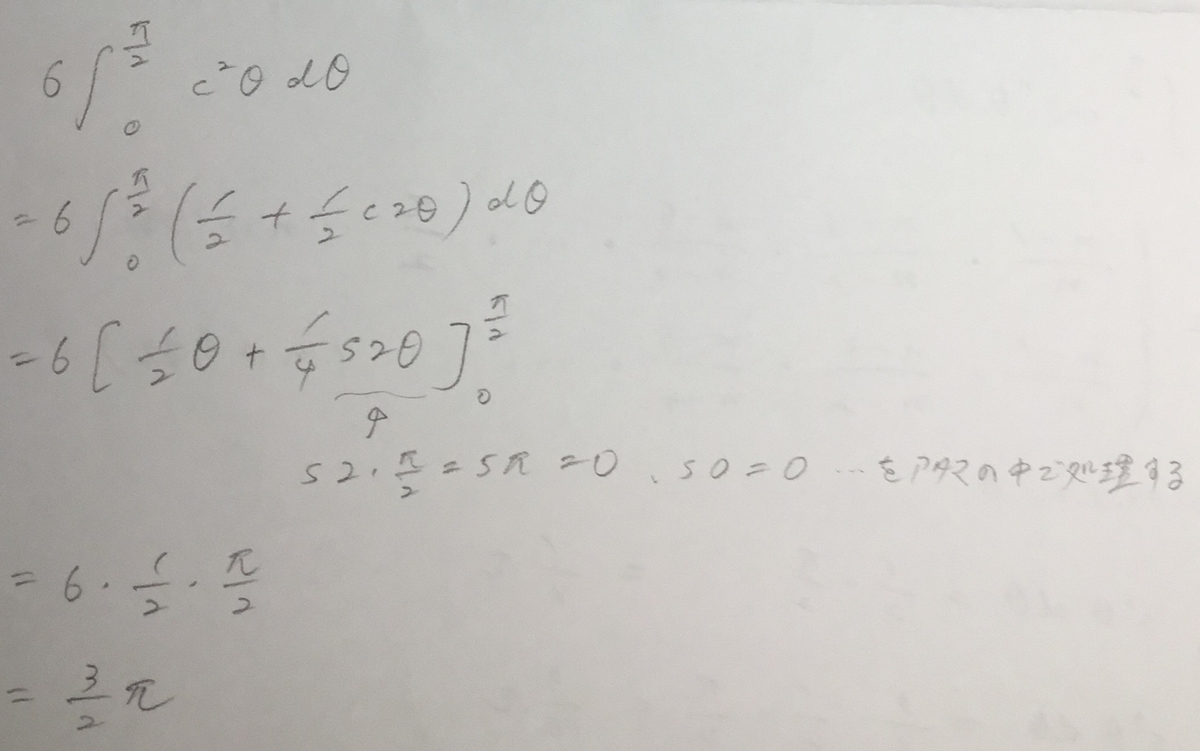 6∫₀^{π/2} c²θ dθ
= 6∫₀^{π/2} (1/2 + 1/2 c2θ) dθ
= 6[1/2 θ + 1/4 s2θ]₀^{π/2}
↑
s2・π/2 = sπ = 0、s0 = 0 …をアタマの中で処理する
= 6・1/2・π/2
= 3/2 π